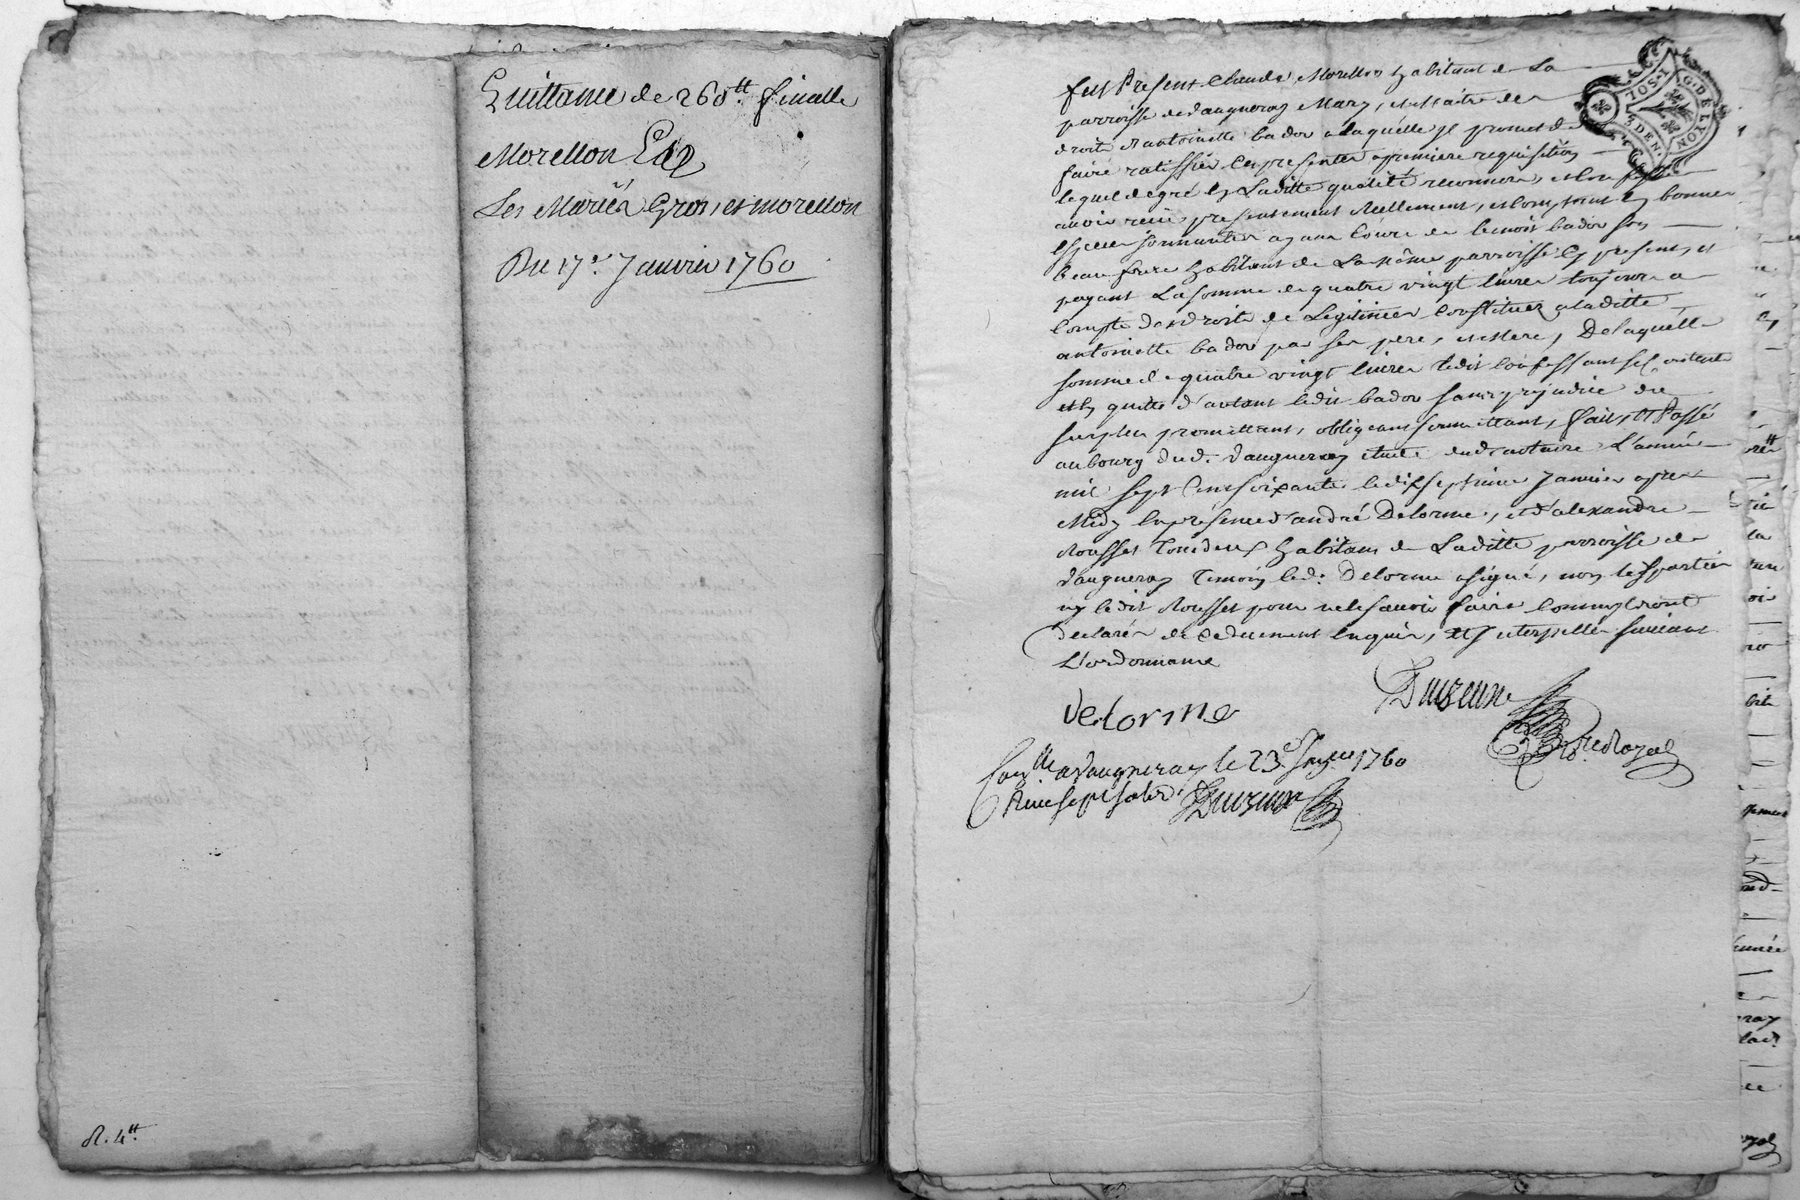 Quittance de 260tt finalle
Morellon
Les Mariés Gros, et morellon
Du 17e Janvier 1760
R. 4tt
G. DE LYON
1. SOL
3 DEN.
fut Present Claude Morellon habitant de La
parroisse de Vaugneray Mary, et Maitre des
droits d'antoinette bador a laquélle il promet de
faire ratiffier les presentes a premiere requisition
lequel de gré en Laditte qualité reconnoit, et confesse
avoir reçu presentement réellement, et comptant en bonnes
espèces sonnantes ayant cours de benoit bador son
beau frere habitant de La même parroisse icy present, et
payant La somme de quatre vingt livres toujours a
compte des droits de Legitimes constituez a laditte
antoinette badore par ses pere, et Mere, De laquélle
somme de quatre vingt livres ledit confessant se contente
et en quitte d'autant ledit badore sans préjudice du
surplus promettant, obligeant soumettant, fait, et Passé
au bourg dud. Vaugneray etude dud. notaire L'année
mil sept cent soixante le dix septieme Janvier apres
Midy En présence d'andré Delorme, et d'alexandre
Rousset Tous deux habitans de Laditte parroisse de
Vaugneray Temoins led. Delorme a signé, non les parties
ny ledit Rousset pour ne le savoir faire comme ils ont
declarés de ce duement enquis, et interpellés suivant
L'ordonnance
Delorme
Nore Royal
a Vaugneray le 23e Janver 1760
Reçu sept sols